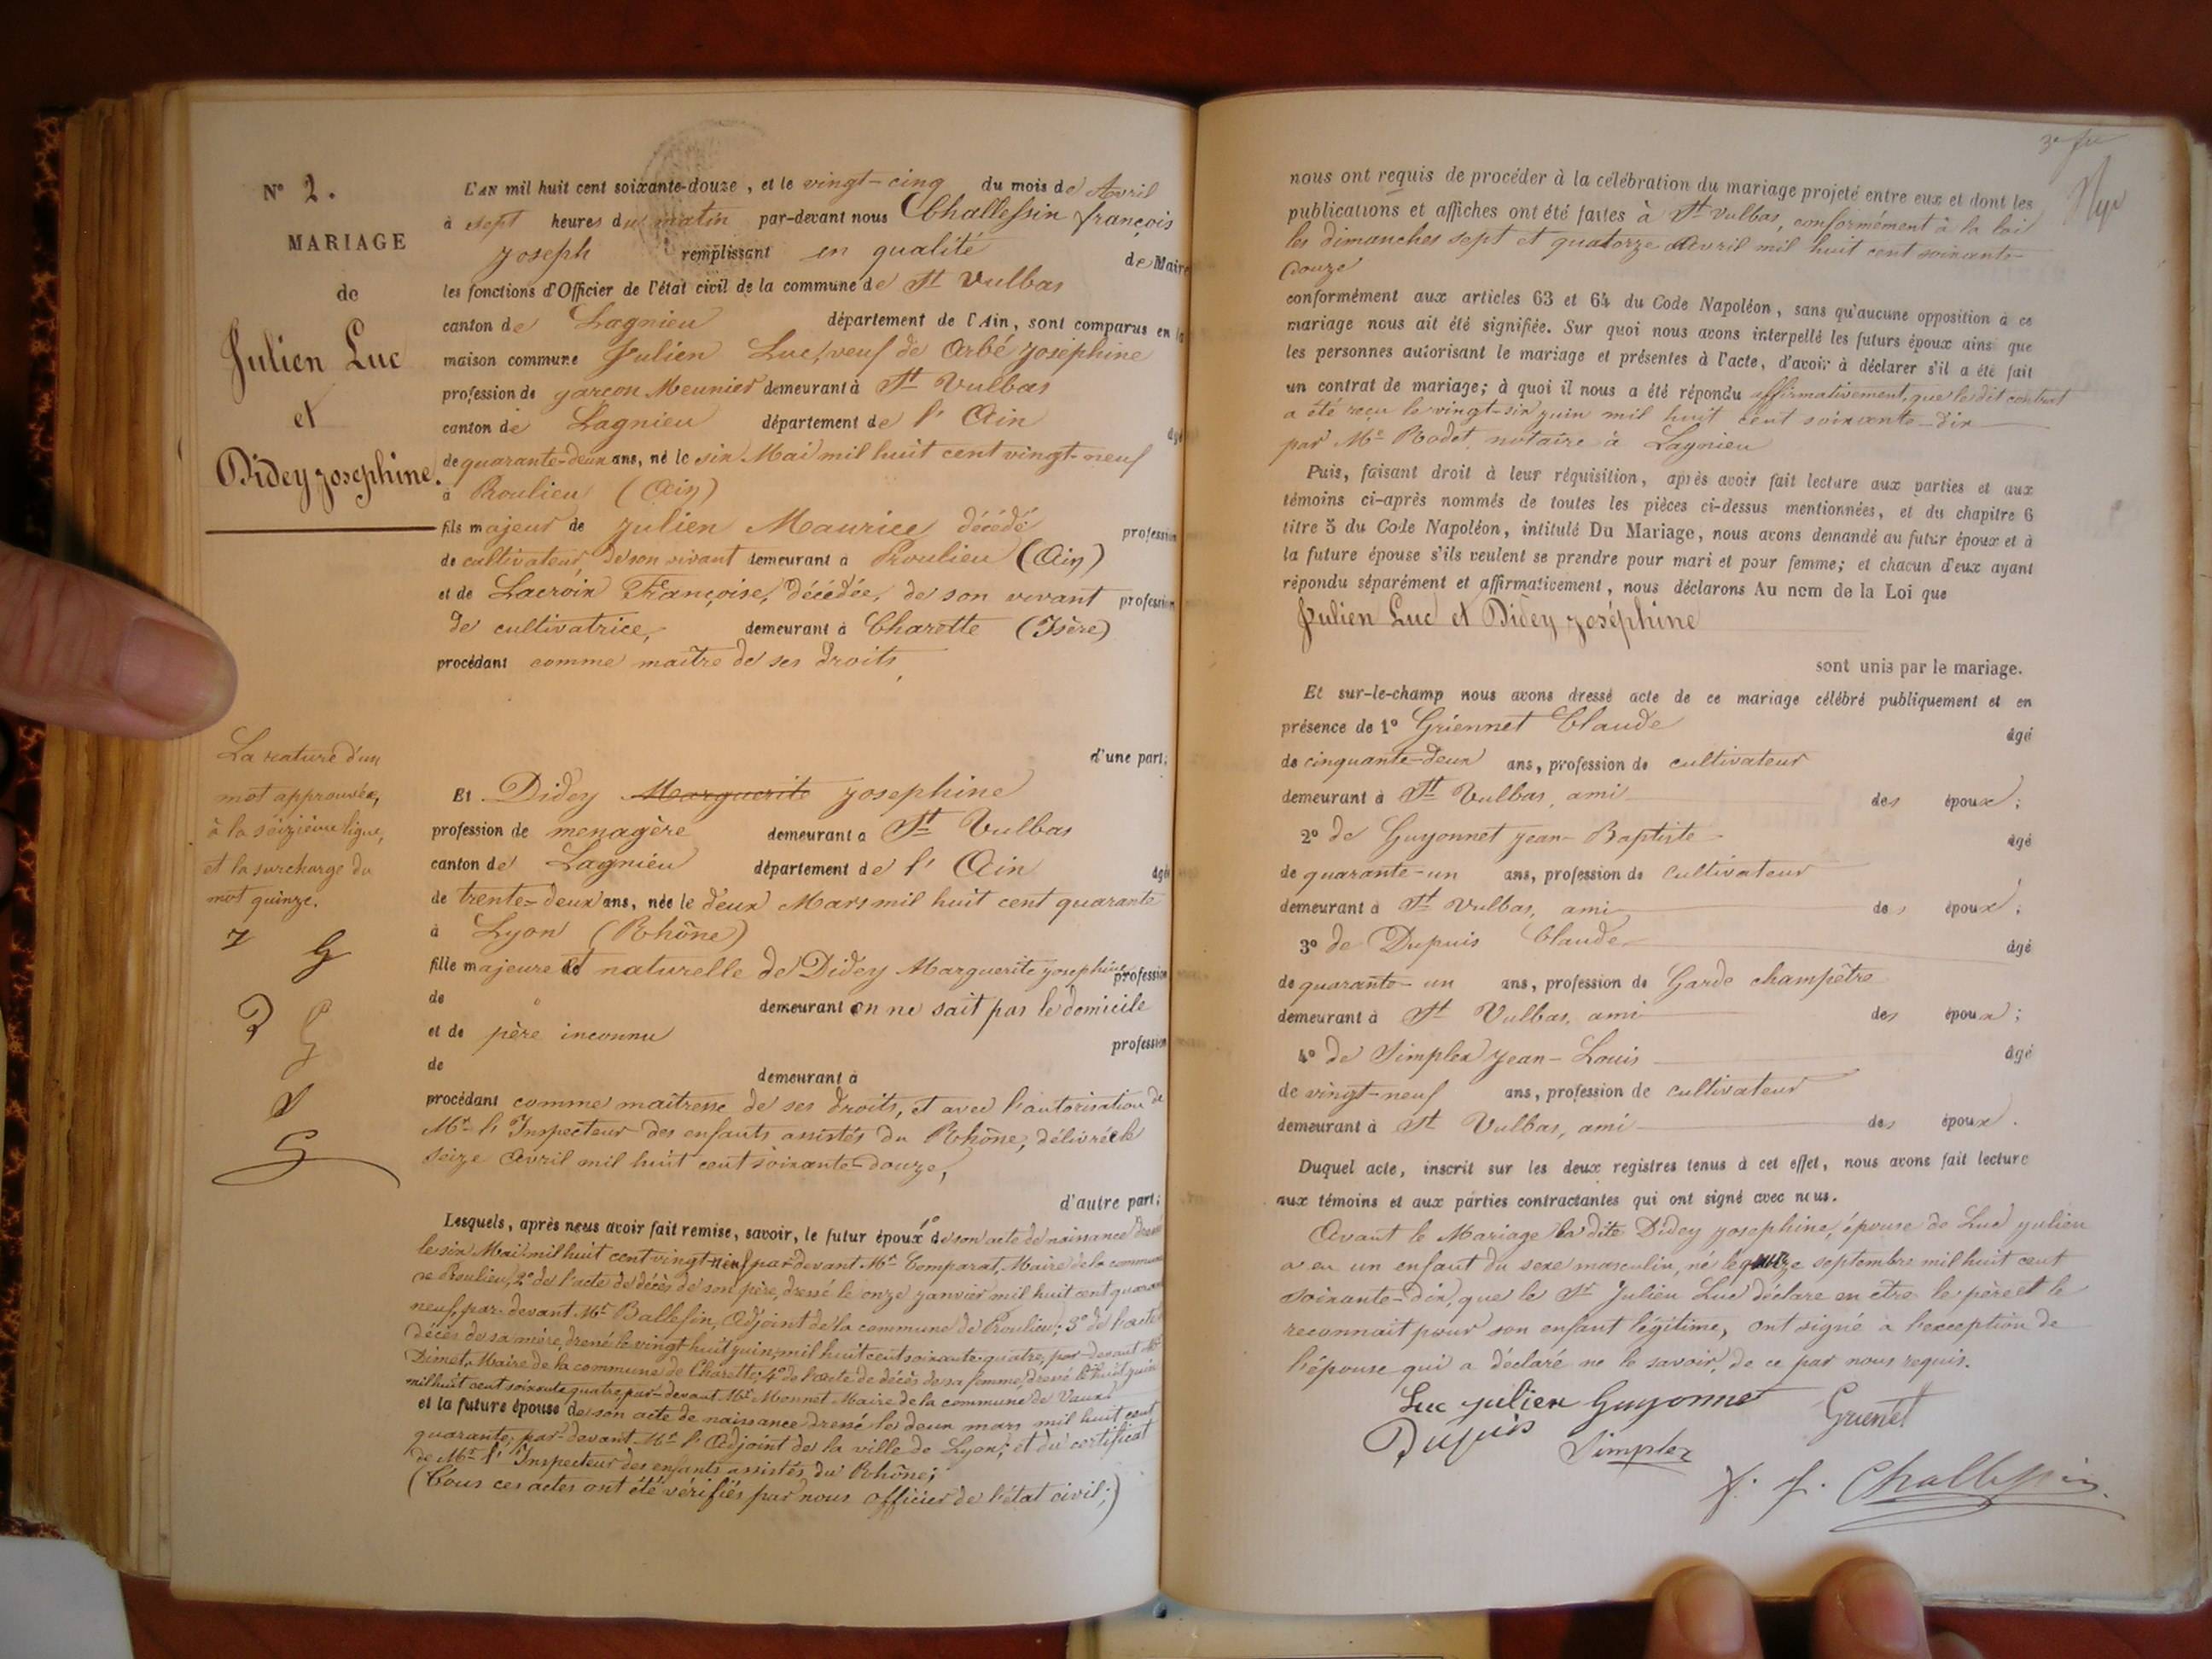 N° 2.
MARIAGE
de
Julien Luc
et
Didey Josephine.
La rature d'un
mot approuvée,
à la seizième ligne,
et la surcharge du
mot quinze.
L'AN mil huit cent soixante-douze, et le vingt-cinq du mois de Avril
à sept heures du matin par-devant nous Challessin françois
Joseph remplissant en qualité de Maire
les fonctions d'Officier de l'état civil de la commune de St Vulbas
canton de Lagnieu département de l'Ain, sont comparus en la
maison commune Julien Luc, veuf de Arbé Joséphine
profession de garçon Meunier demeurant à St Vulbas
canton de Lagnieu département de l'Ain âgé
de quarante-deux ans, né le six Mai mil huit cent vingt-neuf
à Proulieu (Ain)
fils majeur de Julien Maurice décédé profession
de cultivateur, de son vivant demeurant à Proulieu (Ain)
et de Lacroix Françoise, décédée, de son vivant profession
de cultivatrice, demeurant à Charette (Isère)
procédant comme maître de ses droits,
d'une part;
Et Didey Marguerite Josephine
profession de menagère demeurant à St Vulbas
canton de Lagnieu département de l'Ain âgée
de trente-deux ans, née le deux Mars mil huit cent quarante
à Lyon (Rhône)
fille majeure et naturelle de Didey Marguerite Josephine profession
de demeurant on ne sait pas le domicile
et de père inconnu profession
de demeurant à
procédant comme maîtresse de ses droits, et avec l'autorisation de
Mr l'Inspecteur des enfants assistés du Rhône, délivrée le
seize Avril mil huit cent soixante-douze,
d'autre part;
Lesquels, après nous avoir fait remise, savoir, le futur époux 1° de son acte de naissance dressé
le six Mai mil huit cent vingt-neuf par-devant Mr Comparat, Maire de la commune
de Proulieu; 2° de l'acte de décès de son père, dressé le onze janvier mil huit cent quarante
neuf, par-devant Mr Ballefin, Adjoint de la commune de Proulieu; 3° de l'acte
décès de sa mère, dressé le vingt huit juin mil huit cent soixante-quatre, par-devant Mr
Dimet, Maire de la commune de Charette; 4° de l'acte de décès de sa femme, dressé le huit juin
mil huit cent soixante quatre par-devant Mr Monnet Maire de la commune de Vaux
et la future épouse de son acte de naissance dressé le deux mars mil huit cent
quarante, par-devant Mr l'Adjoint de la ville de Lyon; et du certificat
de Mr l'Inspecteur des enfants assistés du Rhône;
(Tous ces actes ont été vérifiés par nous officier de l'état civil;)
nous ont requis de procéder à la célébration du mariage projeté entre eux et dont les
publications et affiches ont été faites à St Vulbas, conformément à la loi
les dimanches sept et quatorze Avril mil huit cent soixante-
douze
conformément aux articles 63 et 64 du Code Napoléon, sans qu'aucune opposition à ce
mariage nous ait été signifiée. Sur quoi nous avons interpellé les futurs époux ainsi que
les personnes autorisant le mariage et présentes à l'acte, d'avoir à déclarer s'il a été fait
un contrat de mariage; à quoi il nous a été répondu affirmativement, que le dit contrat
a été reçu le vingt-six juin mil huit cent soixante-dix
par Me Rodet, notaire à Lagnieu
Puis, faisant droit à leur réquisition, après avoir fait lecture aux parties et aux
témoins ci-après nommés de toutes les pièces ci-dessus mentionnées, et du chapitre 6
titre 5 du Code Napoléon, intitulé Du Mariage, nous avons demandé au futur époux et à
la future épouse s'ils veulent se prendre pour mari et pour femme; et chacun d'eux ayant
répondu séparément et affirmativement, nous déclarons Au nom de la Loi que
Julien Luc et Didey Joséphine
sont unis par le mariage.
Et sur-le-champ nous avons dressé acte de ce mariage célébré publiquement et en
présence de 1° Griennet Claude âgé
de cinquante-deux ans, profession de cultivateur
demeurant à St Vulbas, ami des époux;
2° de Guyonnet Jean-Baptiste âgé
de quarante-un ans, profession de cultivateur
demeurant à St Vulbas, ami des époux;
3° de Dupuis Claude âgé
de quarante-un ans, profession de Garde champêtre
demeurant à St Vulbas, ami des époux;
4° de Simplex Jean-Louis âgé
de vingt-neuf ans, profession de cultivateur
demeurant à St Vulbas, ami des époux.
Duquel acte, inscrit sur les deux registres tenus à cet effet, nous avons fait lecture
aux témoins et aux parties contractantes qui ont signé avec nous.
Avant le Mariage la dite Didey Josephine, épouse de Luc Julien
a eu un enfant du sexe masculin, né le quinze septembre mil huit cent
soixante-dix, que le Sr Julien Luc déclare en être le père et le
reconnait pour son enfant légitime, ont signé à l'exception de
l'épouse qui a déclaré ne le savoir, de ce par nous requis.
Luc Julien Guyonnet Grienet
Dupuis Simplex
f. J. Challessin